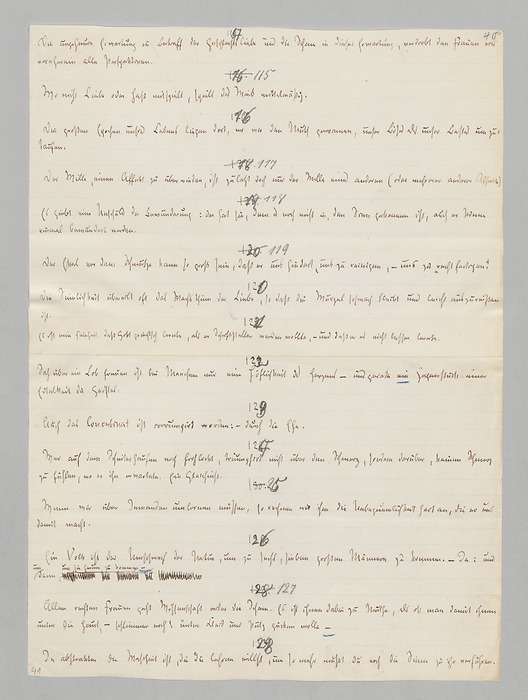 40
Die ungeheure Erwartung in Betreff der Geschlechtsliebe und die Scham in dieser Erwartung, verdirbt den Frauen von
vornherein alle Perspektiven.
115
Wo nicht Liebe oder Haß mitspielt, spielt das Weib mittelmäßig.
116
Die großen Epochen unsres Lebens liegen dort, wo wir den Muth gewinnen, unser Böses als unser Bestes umzu-
taufen.
117
Der Wille, einen Affekt zu überwinden, ist zuletzt doch nur der Wille eines anderen (oder mehrerer anderer Affekte)
118
Es giebt eine Unschuld der Bewunderung: der hat sie, dem es noch nicht in den Sinn gekommen ist, auch er könne
einmal bewundert werden.
119
Der Ekel vor dem Schmutze kann so groß sein, daß er uns hindert, uns zu reinigen, – uns zu „rechtfertigen"
120
Die Sinnlichkeit übereilt oft das Wachsthum der Liebe, so daß die Wurzel schwach bleibt und leicht auszureißen
ist.
121
Es ist eine Feinheit, daß Gott griechisch lernte, als er Schriftsteller werden wollte, – und daß er es nicht besser lernte.
122
Sich über ein Lob freuen ist bei Manchem nur eine Höflichkeit des Herzens – und gerade ein Gegenstück einer
Eitelkeit des Geistes.
123
Auch das Concubinat ist corrumpirt worden: – durch die Ehe.
124
Wer auf dem Scheiterhaufen noch frohlockt, triumphirt nicht über den Schmerz, sondern darüber, keinen Schmerz
zu fühlen, wo er ihn erwartete. Ein Gleichniß.
125
Wenn wir über Jemanden umlernen müssen, so rechnen wir ihm die Unbequemlichkeit hart an, die er uns
damit macht.
126
Ein Volk ist der Umschweif der Natur, um zu sechs, sieben großen Männern zu kommen. – Ja: und
um dann um sie herum zu kommen.
127
Allen rechten Frauen geht Wissenschaft wider die Scham. Es ist ihnen dabei zu Muthe, als ob man damit ihnen
unter die Haut – schlimmer noch! unter Kleid und Putz gucken wolle –
128
Je abstrakter die Wahrheit ist, die du lehren willst, um so mehr mußt du noch die Sinne zu ihr verführen.
41